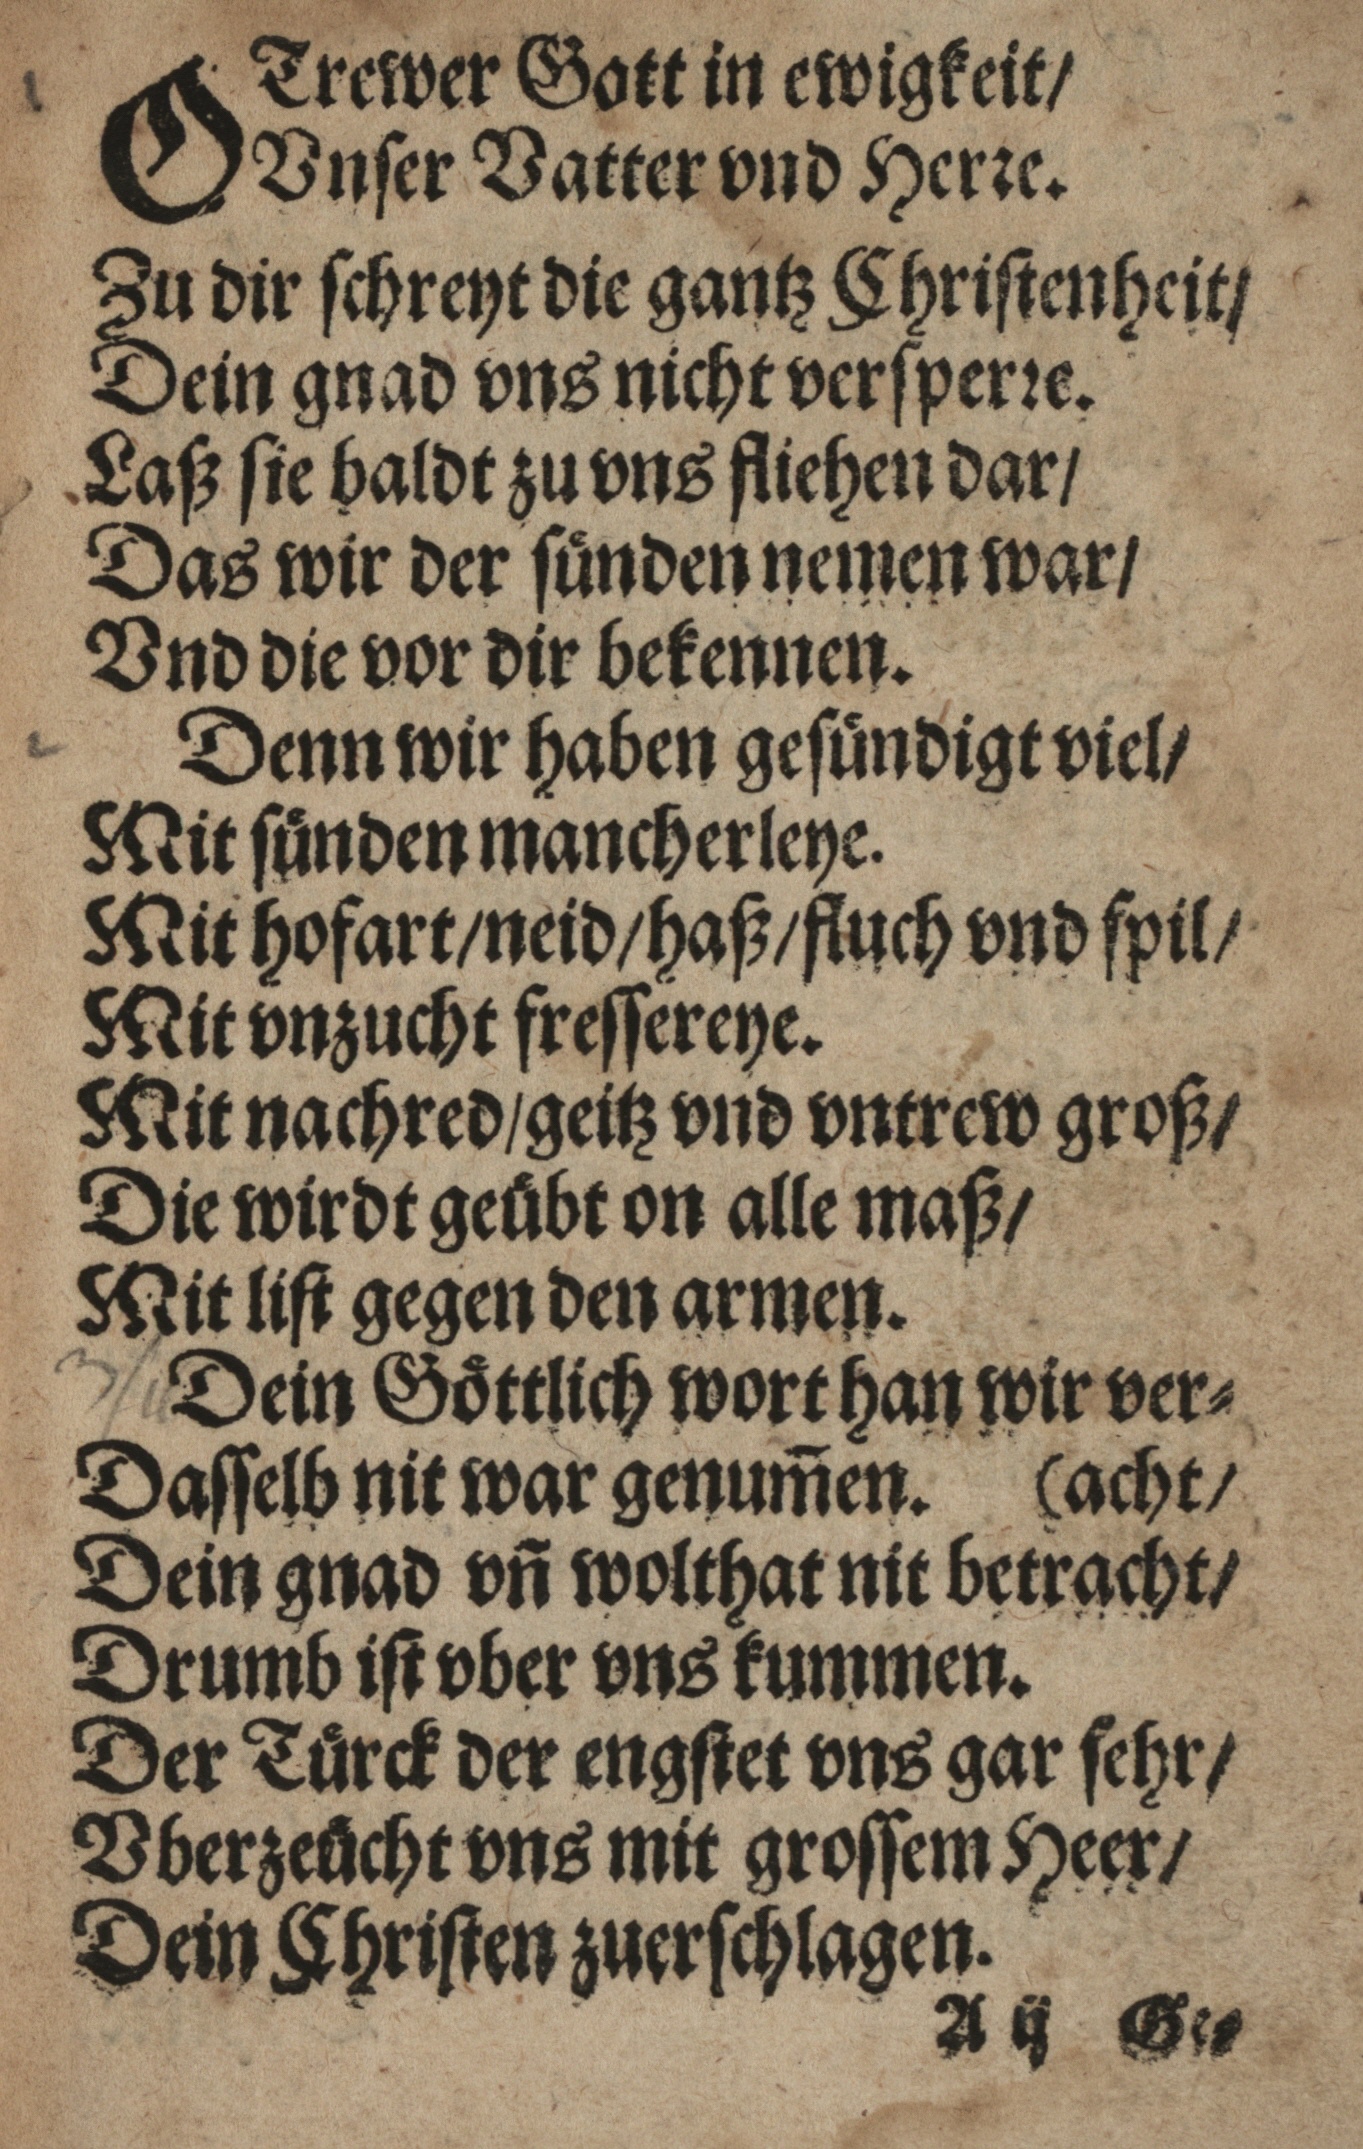 O Trewer Gott in ewigkeit/
Vnser Vatter vnd Herꝛe.
Zu dir schreyt die gantz Christenheit/
Dein gnad vns nicht versperꝛe.
Laß sie baldt zu vns fliehen dar/
Das wir der sünden nemen war/
Vnd die vor dir bekennen.
Denn wir haben gesündigt viel/
Mit sünden mancherleye.
Mit hofart/neid/haß/fluch vnd spil/
Mit vnzucht fressereye.
Mit nachred/geitz vnd vntrew groß/
Die wirdt geübt on alle maß/
Mit list gegen den armen.
Dein Göttlich wort han wir ver-
Dasselb nit war genum̄en. (acht/
Dein gnad vn̄ wolthat nit betracht/
Drumb ist vber vns kummen.
Der Türck der engstet vns gar sehr/
Vberzeücht vns mit grossem Heer/
Dein Christen zuerschlagen.
A ij Ge-